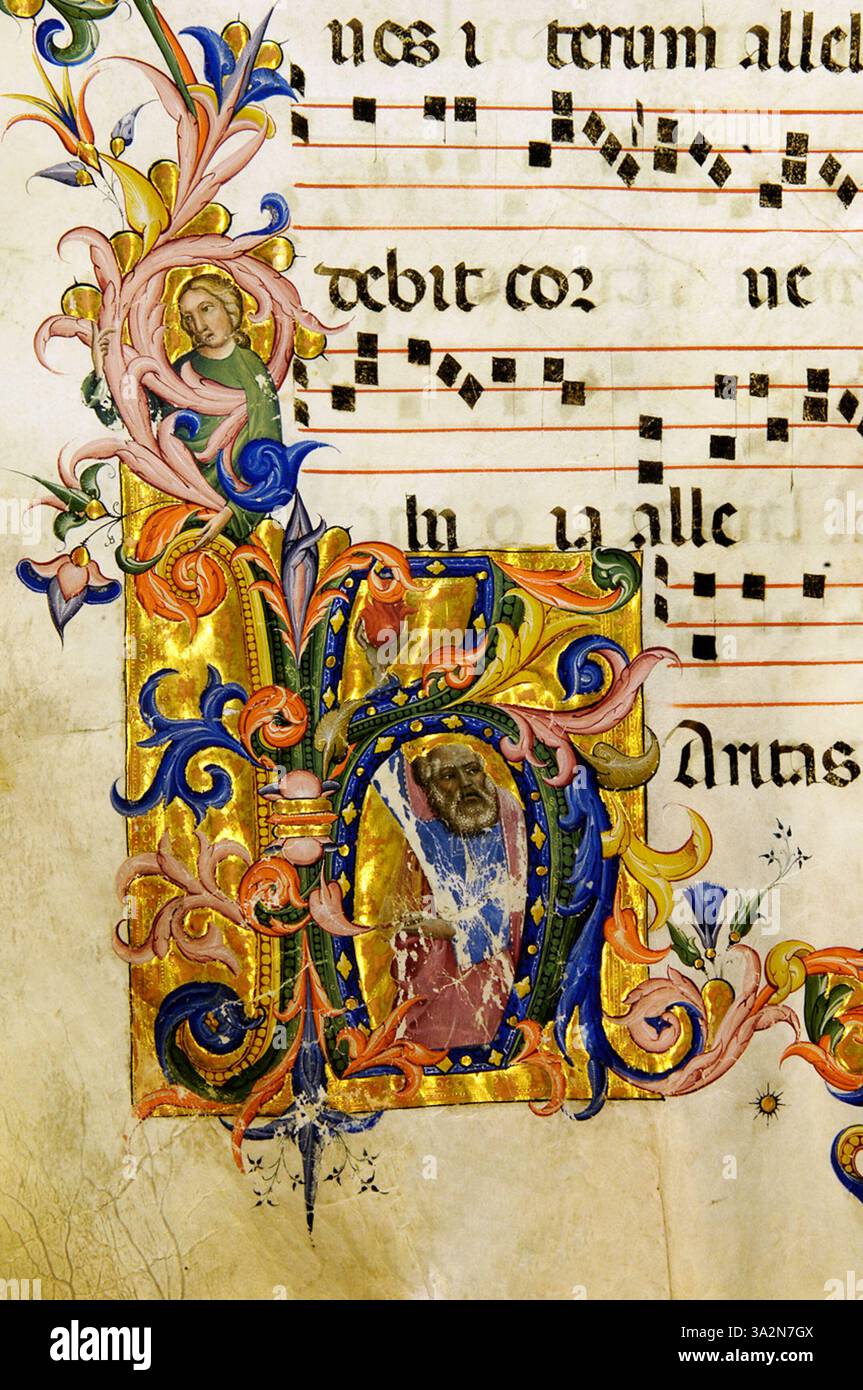 ues i terum allel
debit cor ue
lu ia alle
KAritas
alamy
Image ID: 3A2N7GX
www.alamy.com